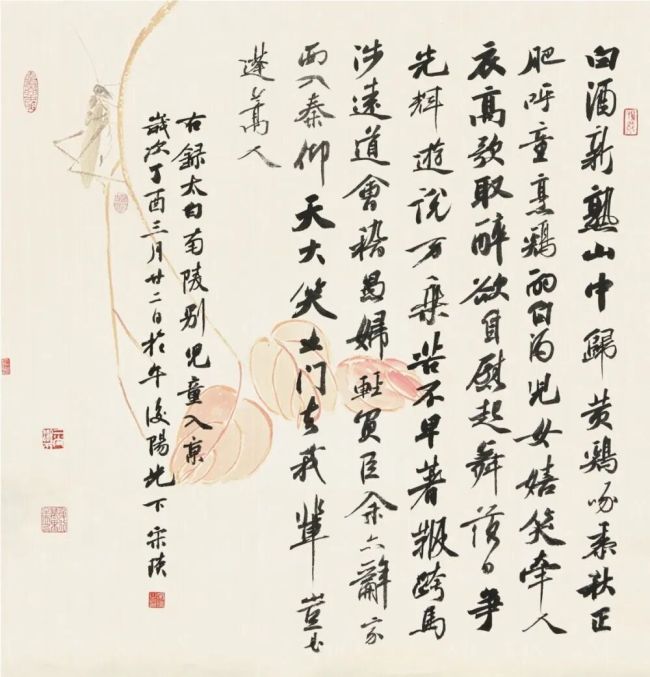 白酒新熟山中歸黃鷄啄黍秋正
肥呼童烹鷄酌白酒兒女嬉笑牽人
衣高歌取醉欲自慰起舞落日爭
光輝遊說万乘苦不早著鞭跨馬
涉遠道會稽愚婦輕買臣余亦辭家
西入秦仰天大笑出門去我輩豈是
蓬蒿人
右錄太白南陵別兒童入京
歲次丁酉三月廿二日於午後陽光下宋